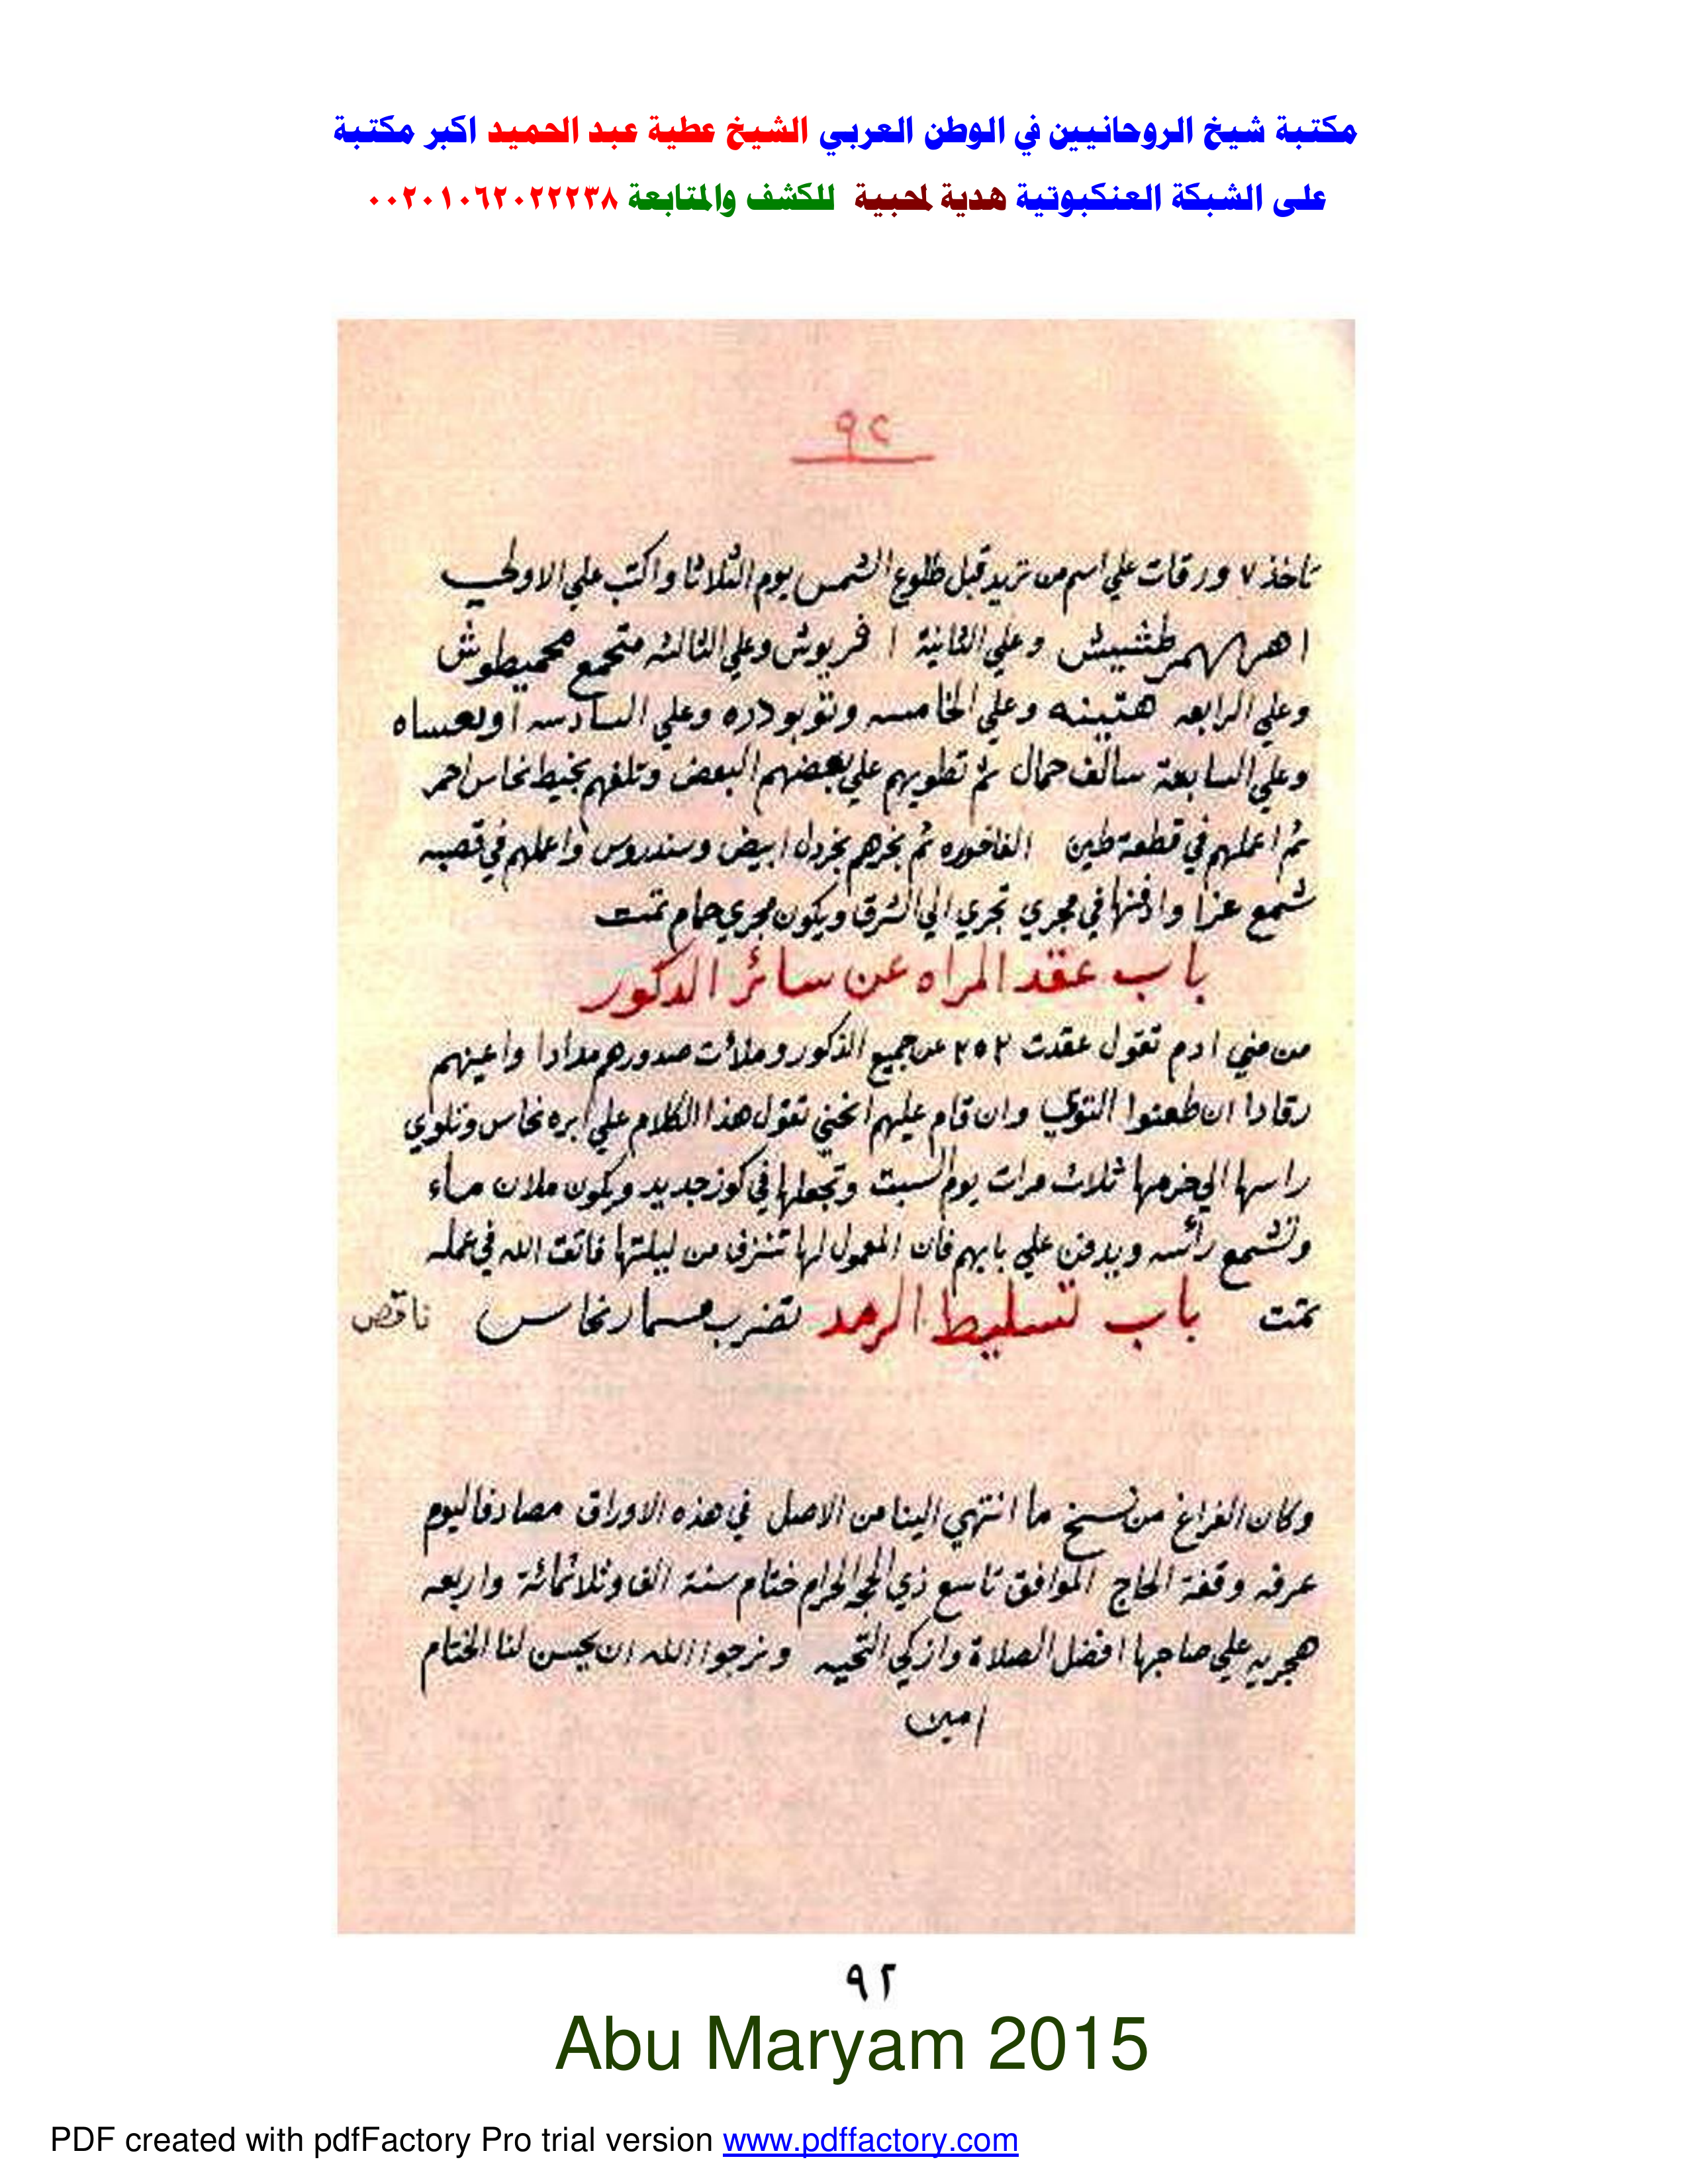 مكتبة شيخ الروحانيين في الوطن العربي الشيخ عطية عبد الحميد اكبر مكتبة
على الشبكة العنكبوتية هدية لمحبية للكشف والمتابعة ٠٠٢٠١٠٦٢٠٢٢٢٣٨
٩٢
تاخذ ٧ ورقات علي اسم من تريد قبل طلوع الشمس يوم الثلاثا واكتب علي الاولي
طشيش وعلي الثانية ا فريوش وعلي الثالثه متجمع محميطوش
وعلي الرابعه هتينه وعلي الخامسه وتوبو دره وعلي السادسه اوبعساه
وعلي السابعة سالف حمال ثم تطويهم علي بعضهم البعض وتلفهم بخيط نحاس احمر
ثم اعملهم في قطعة طين الفاخوره ثم بخرهم بخردل ابيض وسندروس واعملهم في قصبه
شمع عزا وادفنها في مجري تجري الي الشرق ويكون مجري حمام تمت
باب عقد المراه عن سائر الدكور
من مني ادم تقول عقدت ٢٥٢ عن جميع الذكور وملأت صدورهم مدادا واعينهم
رقادا ان طعنوا التوي وان قام عليهم انخني تقول هذا الكلام علي ابره نحاس وتلوي
راسها الي خرمها ثلاث مرات يوم السبت وتجعلها في كوز جديد ويكون ملان ماء
وتشمع رأسه ويدفن علي بابهم فان المعمول لها تنزف من ليلتها فاتق الله في عمله
تمت باب تسليط الرمد تضرب مسمار نحاس ناقص
وكان الفراغ من نسخ ما انتهي الينا من الاصل في هذه الاوراق مصادفا ليوم
عرفه وقفة الحاج الموافق تاسع ذي الحجه الحرام ختام سنة الف وثلاثمائة واربعه
هجريه علي صاحبها افضل الصلاة وازكي التحيه ونرجوا الله ان يحسن لنا الختام
امين
٩٢
Abu Maryam 2015
PDF created with pdfFactory Pro trial version www.pdffactory.com